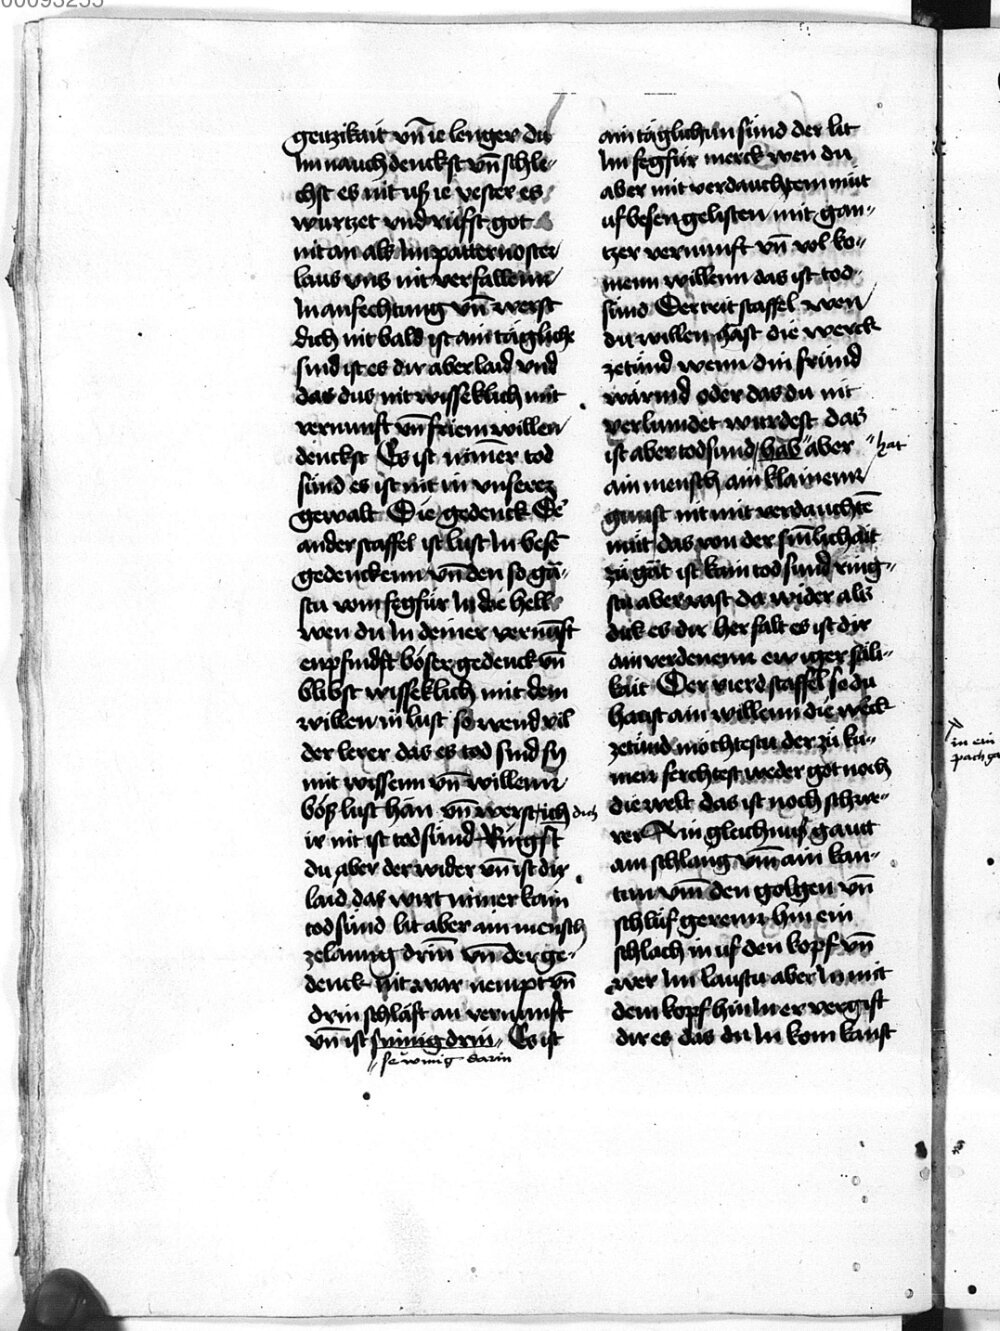 geitzikait vn̄ ie lenger du
Im nauch denckst vn̄ schle-
chst es nit uß ie vester es
wurtzet vnd rüffst got
nit an als Im patter noster
laus vns nit verfallenn
In anfechtung vn̄ werst
dich nit bald ist ain täglich
sünd ist es dir aber laid vnd
das dus nit wisseklich mit
vernunft vn̄ friem willen
denckst Es ist nim̄er tod
sünd es ist nit in vnserez
gewalt Die gedenck De
ander staffel ist lust In bese
gedenckenn vn̄ den so ga-
stu vom fegfür In die hell
wen du In deiner vernūft
enpfindst böser gedenck vn̄
blibst wisseklich mit dem
willen in lust so wend vil
der lerer das es tod sind sy
mit wissenn vn̄ willenn
böß lust han vn̄ werst ich dich
ir nit ist todsünd Ringst
du aber der wider vn̄ ist dir
laid das wirt nimer kain
todsünd lit aber ain mensch
zelanng drin̄ vn̄ der ge-
denck nit war nempt vn̄
drin schläft an vernunft
vn̄ ist sinnig drin Es ist
se winig darin
ain täglichin sünd der lit
Im fegfür merck wen du
aber mit verdauchtem müt
uf besen gelisten mit gan-
tzer vernunft vn̄ vol ko-
menn willenn das ist tod
sünd Der trit staffel wen
du willen hast die werck
zetünd wenn din fründ
wärind oder das du nit
verlumdet wurdest das
ist aber todsund hab aber hat
ain mensch ain klainenn
gunst nit mit verdauchtē
müt das von der sin̄lichait
zu gat ist kain tod sund ring-
stu aber vast da wider als
dick es dir her falt es ist dir
ain verdenenn ewiger säli-
kait Der vierd staffel so du
haust ain willenn die werk
zetünd möchtestu der zü ku-
men ferchtest weder got noch
die welt das ist noch schwe-
rer Ain gleichnuß gautt
ain schlang vm̄ ain kan-
tan vm̄ den golgen vn̄
schlüf gerenn hin ein
schlach in uf den kopf vn̄
wer Im laustu aber In mit
dem kopf hin In er vergift
dir es das du In kom kanst
in ein